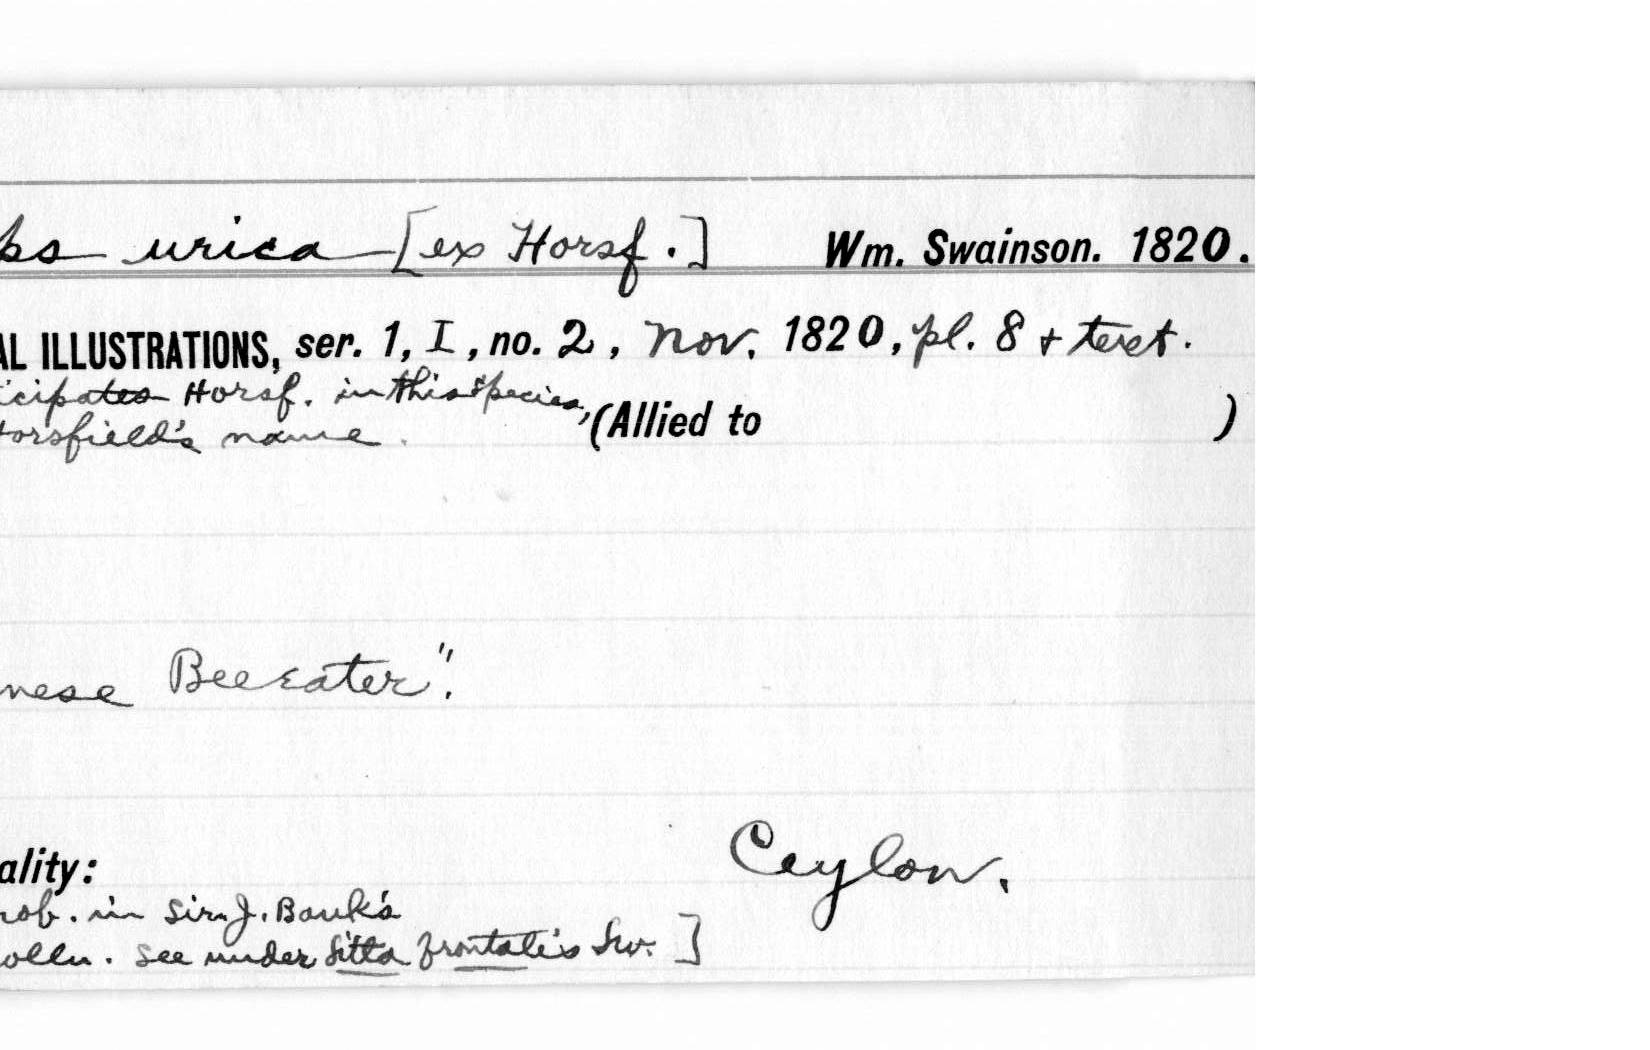 ps urica [ex Horsf.] Wm. Swainson. 1820.
AL ILLUSTRATIONS, ser. 1, I, no. 2, Nov. 1820, pl. 8 + text.
icipates Horsf. in this species,
(Allied to )
Horsfield's name.
nese Bee-eater".
ality: Ceylon.
rob. in Sir J. Bank's
olln. See under Sitta frontalis Sw. ]